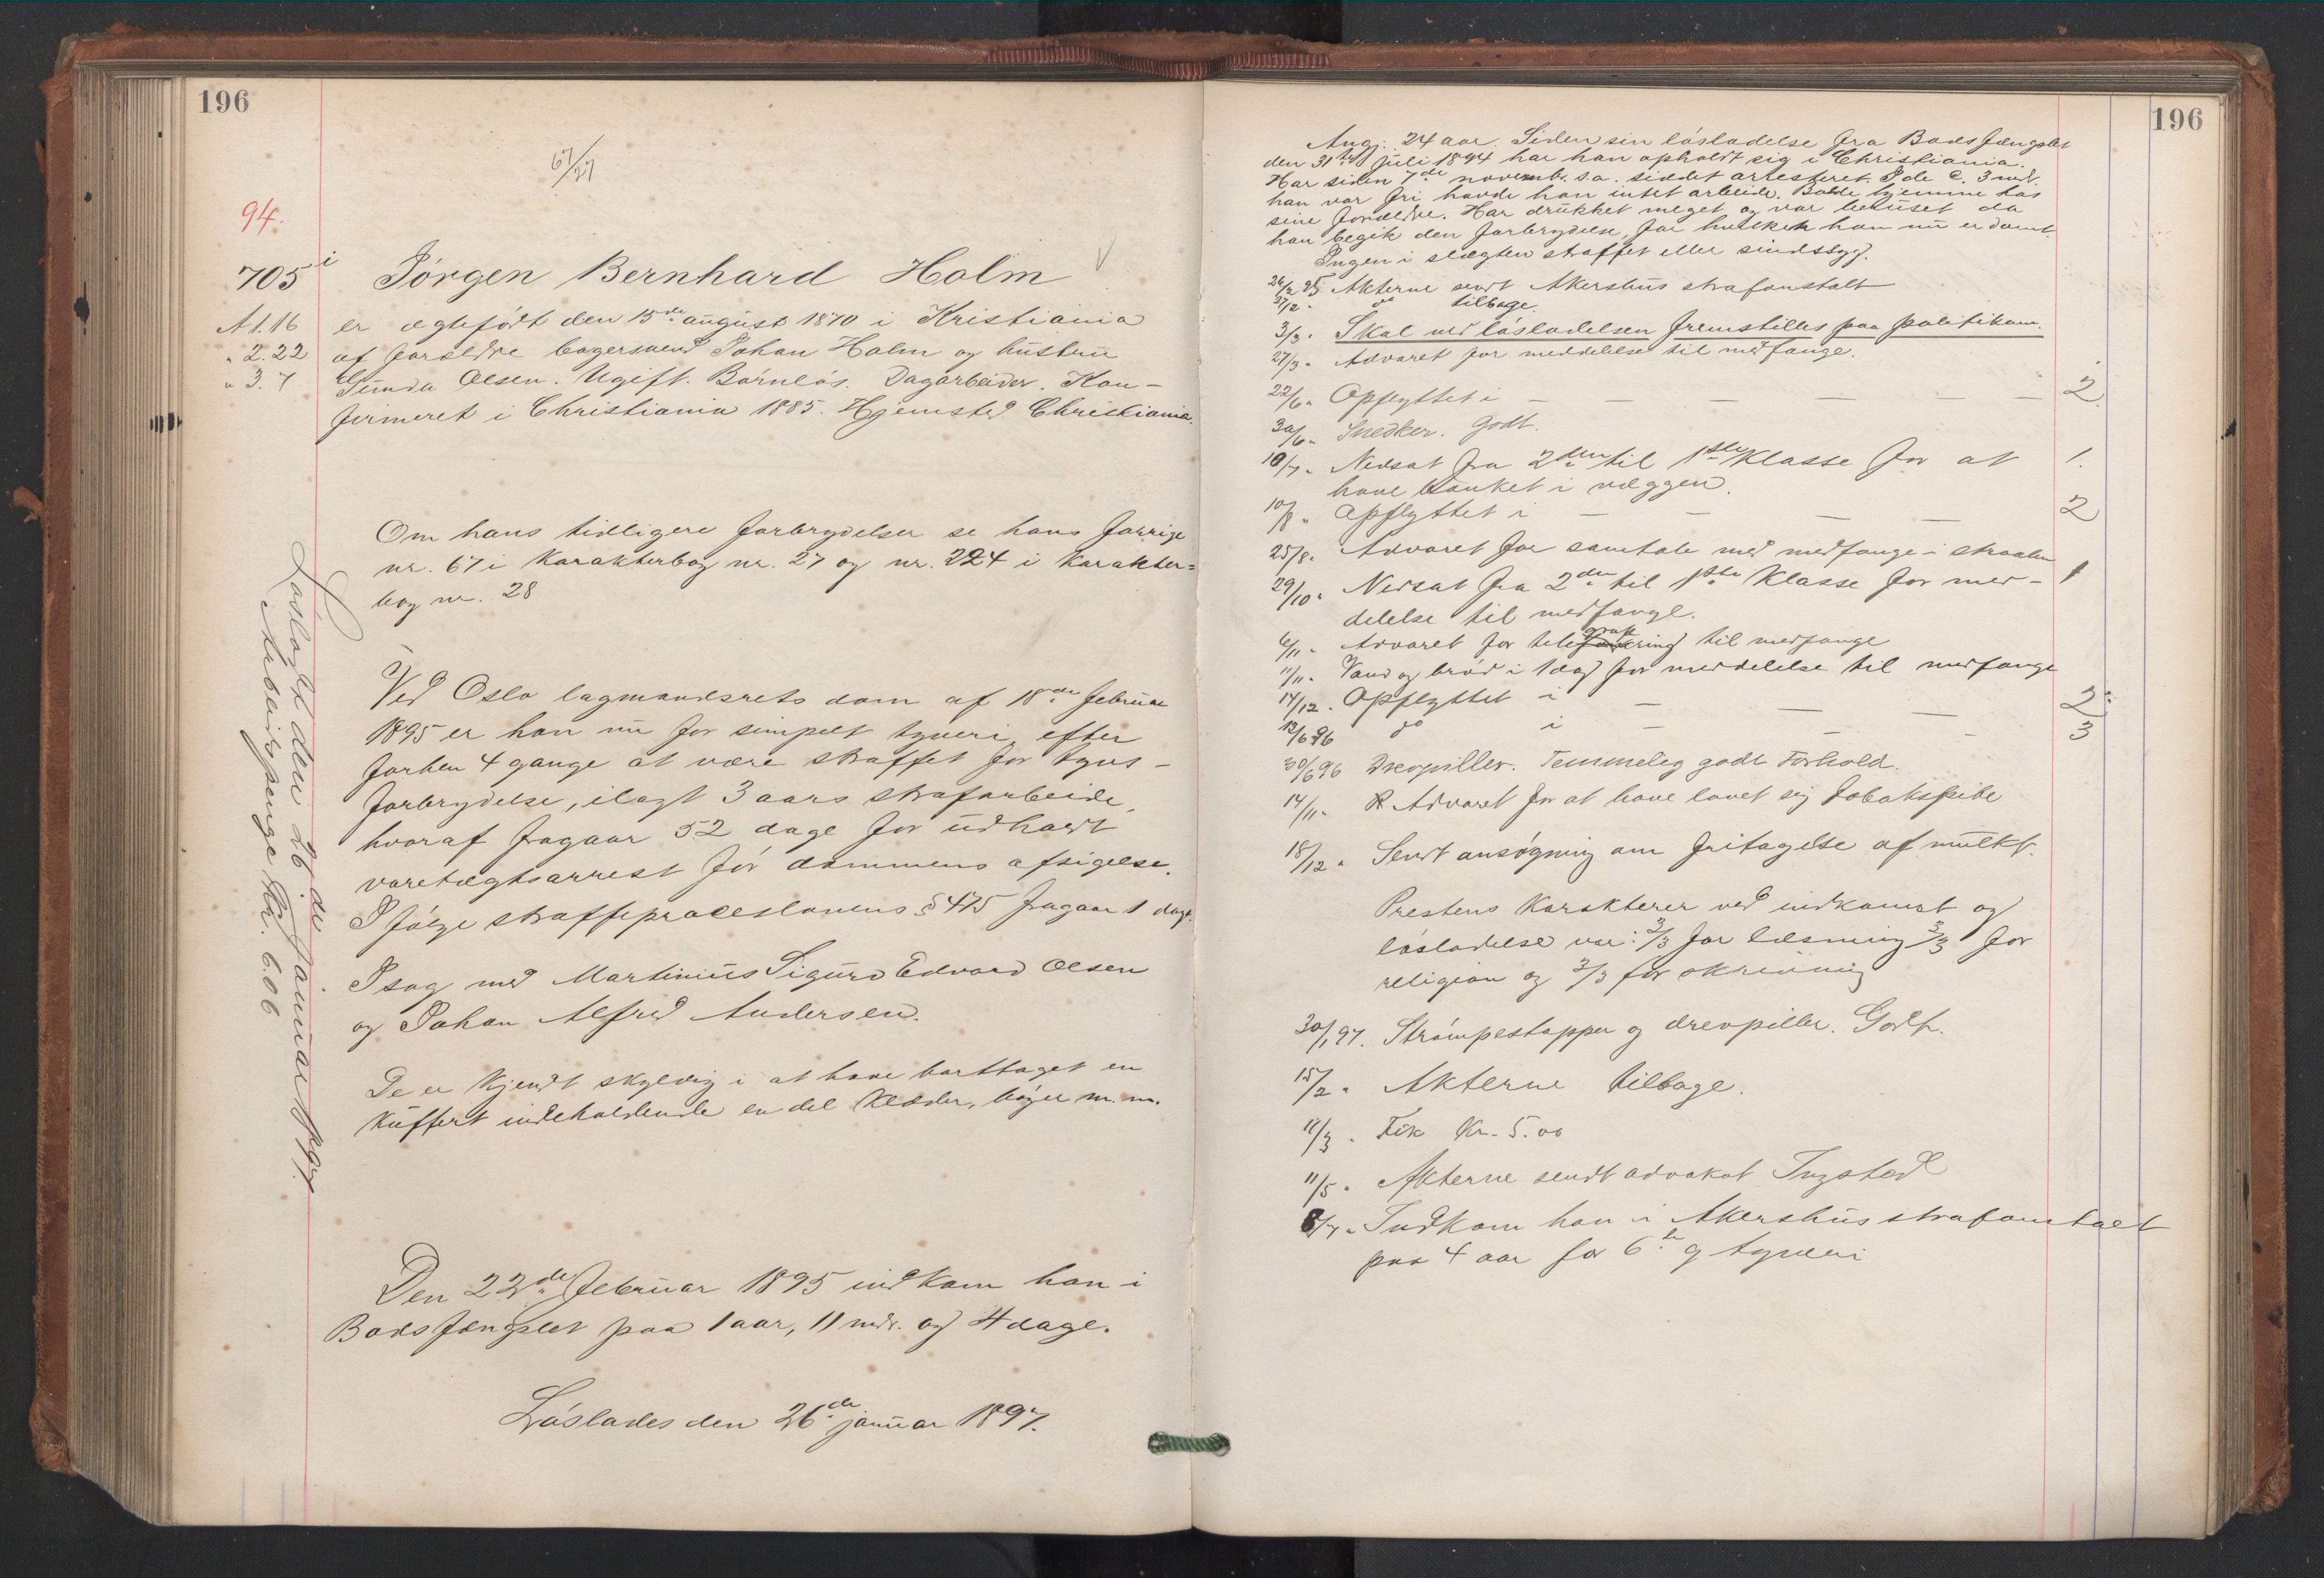 196
67/27
94.
705 i Jörgen Bernhard Holm
A 1.16 er ægtefödt den 15de august 1870 i Kristiania
" 2.22 af forældre bagersvend Johan Holm og hustru
" 3.7 Gunda Olsen. Ugift. Barnlös. Dagarbeider. Kon-
firmeret i Christiania 1885. Hjemsted Christiania.
Om hans tidligere forbrydelser se hans forrige
nr. 67 i Karakterbog nr. 27 og nr. 224 i Karakter-
bog nr. 28
Ved Oslo lagmandsrets dom af 18de februar
1895 er han nu for simpelt tyveri, efter
forhen 4 gange at være straffet for tyvs-
forbrydelse, ilagt 3 aars strafarbeide,
hvoraf fragaar 52 dage for udholdt
varetægtsarrest för dommens afsigelse.
I fölge straffeproceslovens § 475 fragaar 1 dag.
I sag med Martinius Sigurd Edvard Olsen
og Johan Alfred Andersen.
De er kjendt skyldig i at have borttaget en
Kuffert indeholdende en del Klæder, böger m.m.
Den 22de februar 1895 indkom han i
Bodsfængslet paa 1 aar, 11 mdr. og 4 dage.
Löslades den 26de januar 1897.
Löslagt den 26de januar 1897
Arbeidspenge Kr. 6.06
196
Ang: 24 aar. Siden sin lösladelse fra Bodsfængslet
den 31te juli 1894 har han opholdt sig i Christiania.
Har siden 7de novembr. s.a. siddet arresteret. I de c. 3 mdr.
han var fri havde han intet arbeide. Boede hjemme hos
sine forældre. Har drukket meget og var beruset da
han begik den forbrydelse, for hvilken han nu er dömt.
Ingen i slægten straffet eller sindssyg.
26/2 95 Akterne sendt Akershus strafanstalt
27/2 " do tilbage.
3/3 " Skal ved lösladelsen fremstilles paa politikam.
27/3 " Advaret for meddelelse til medfange.
22/6 " Opflyttet i — — — — — 2.
30/6 " Snedker. Godt.
10/7 " Nedsat fra 2den til 1ste Klasse for at 1.
have banket i væggen.
10/8 " Opflyttet i — — — — 2
25/8 " Advaret for samtale med medfange i straalen
29/10 " Nedsat fra 2den til 1ste Klasse for med- 1
delelse til medfange.
6/11 " Advaret for telegrafering til medfange
11/11 " Vand og bröd i 1 dag for meddelelse til medfange
14/12 " Opflyttet i — — — 2
12/6 96 do i — — — 3
30/6 96 Drevpiller. Temmelig godt Forhold.
14/11 " Advaret for at have lavet sig Tobakspibe
18/12 " Sendt ansögning om fritagelse af mulkt.
Prestens Karakterer ved indkomst og
lösladelse var: 3/3 for læsning 3/3 for
religion og 3/3 for skrivning
30/1 97. Strömpestopper og drevpiller. Godt.
15/2 " Akterne tilbage.
11/3 " Fik Kr. 5.00
11/5 " Akterne sendt advokat Ingstad
8/7 " Indkom han i Akershus strafanstalt
paa 4 aar for 6te g tyveri